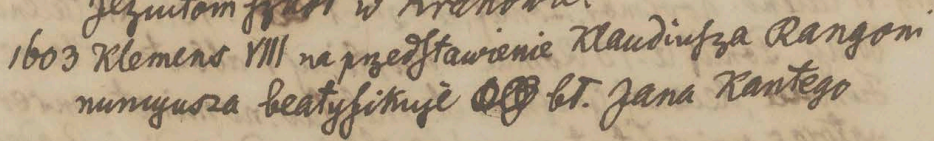 Jezuitom w Krakowie.
1603 Klemens VIII na przedstawienie Klaudiusza Rangoni
nuncyusza beatyfikuje bł. Jana Kantego